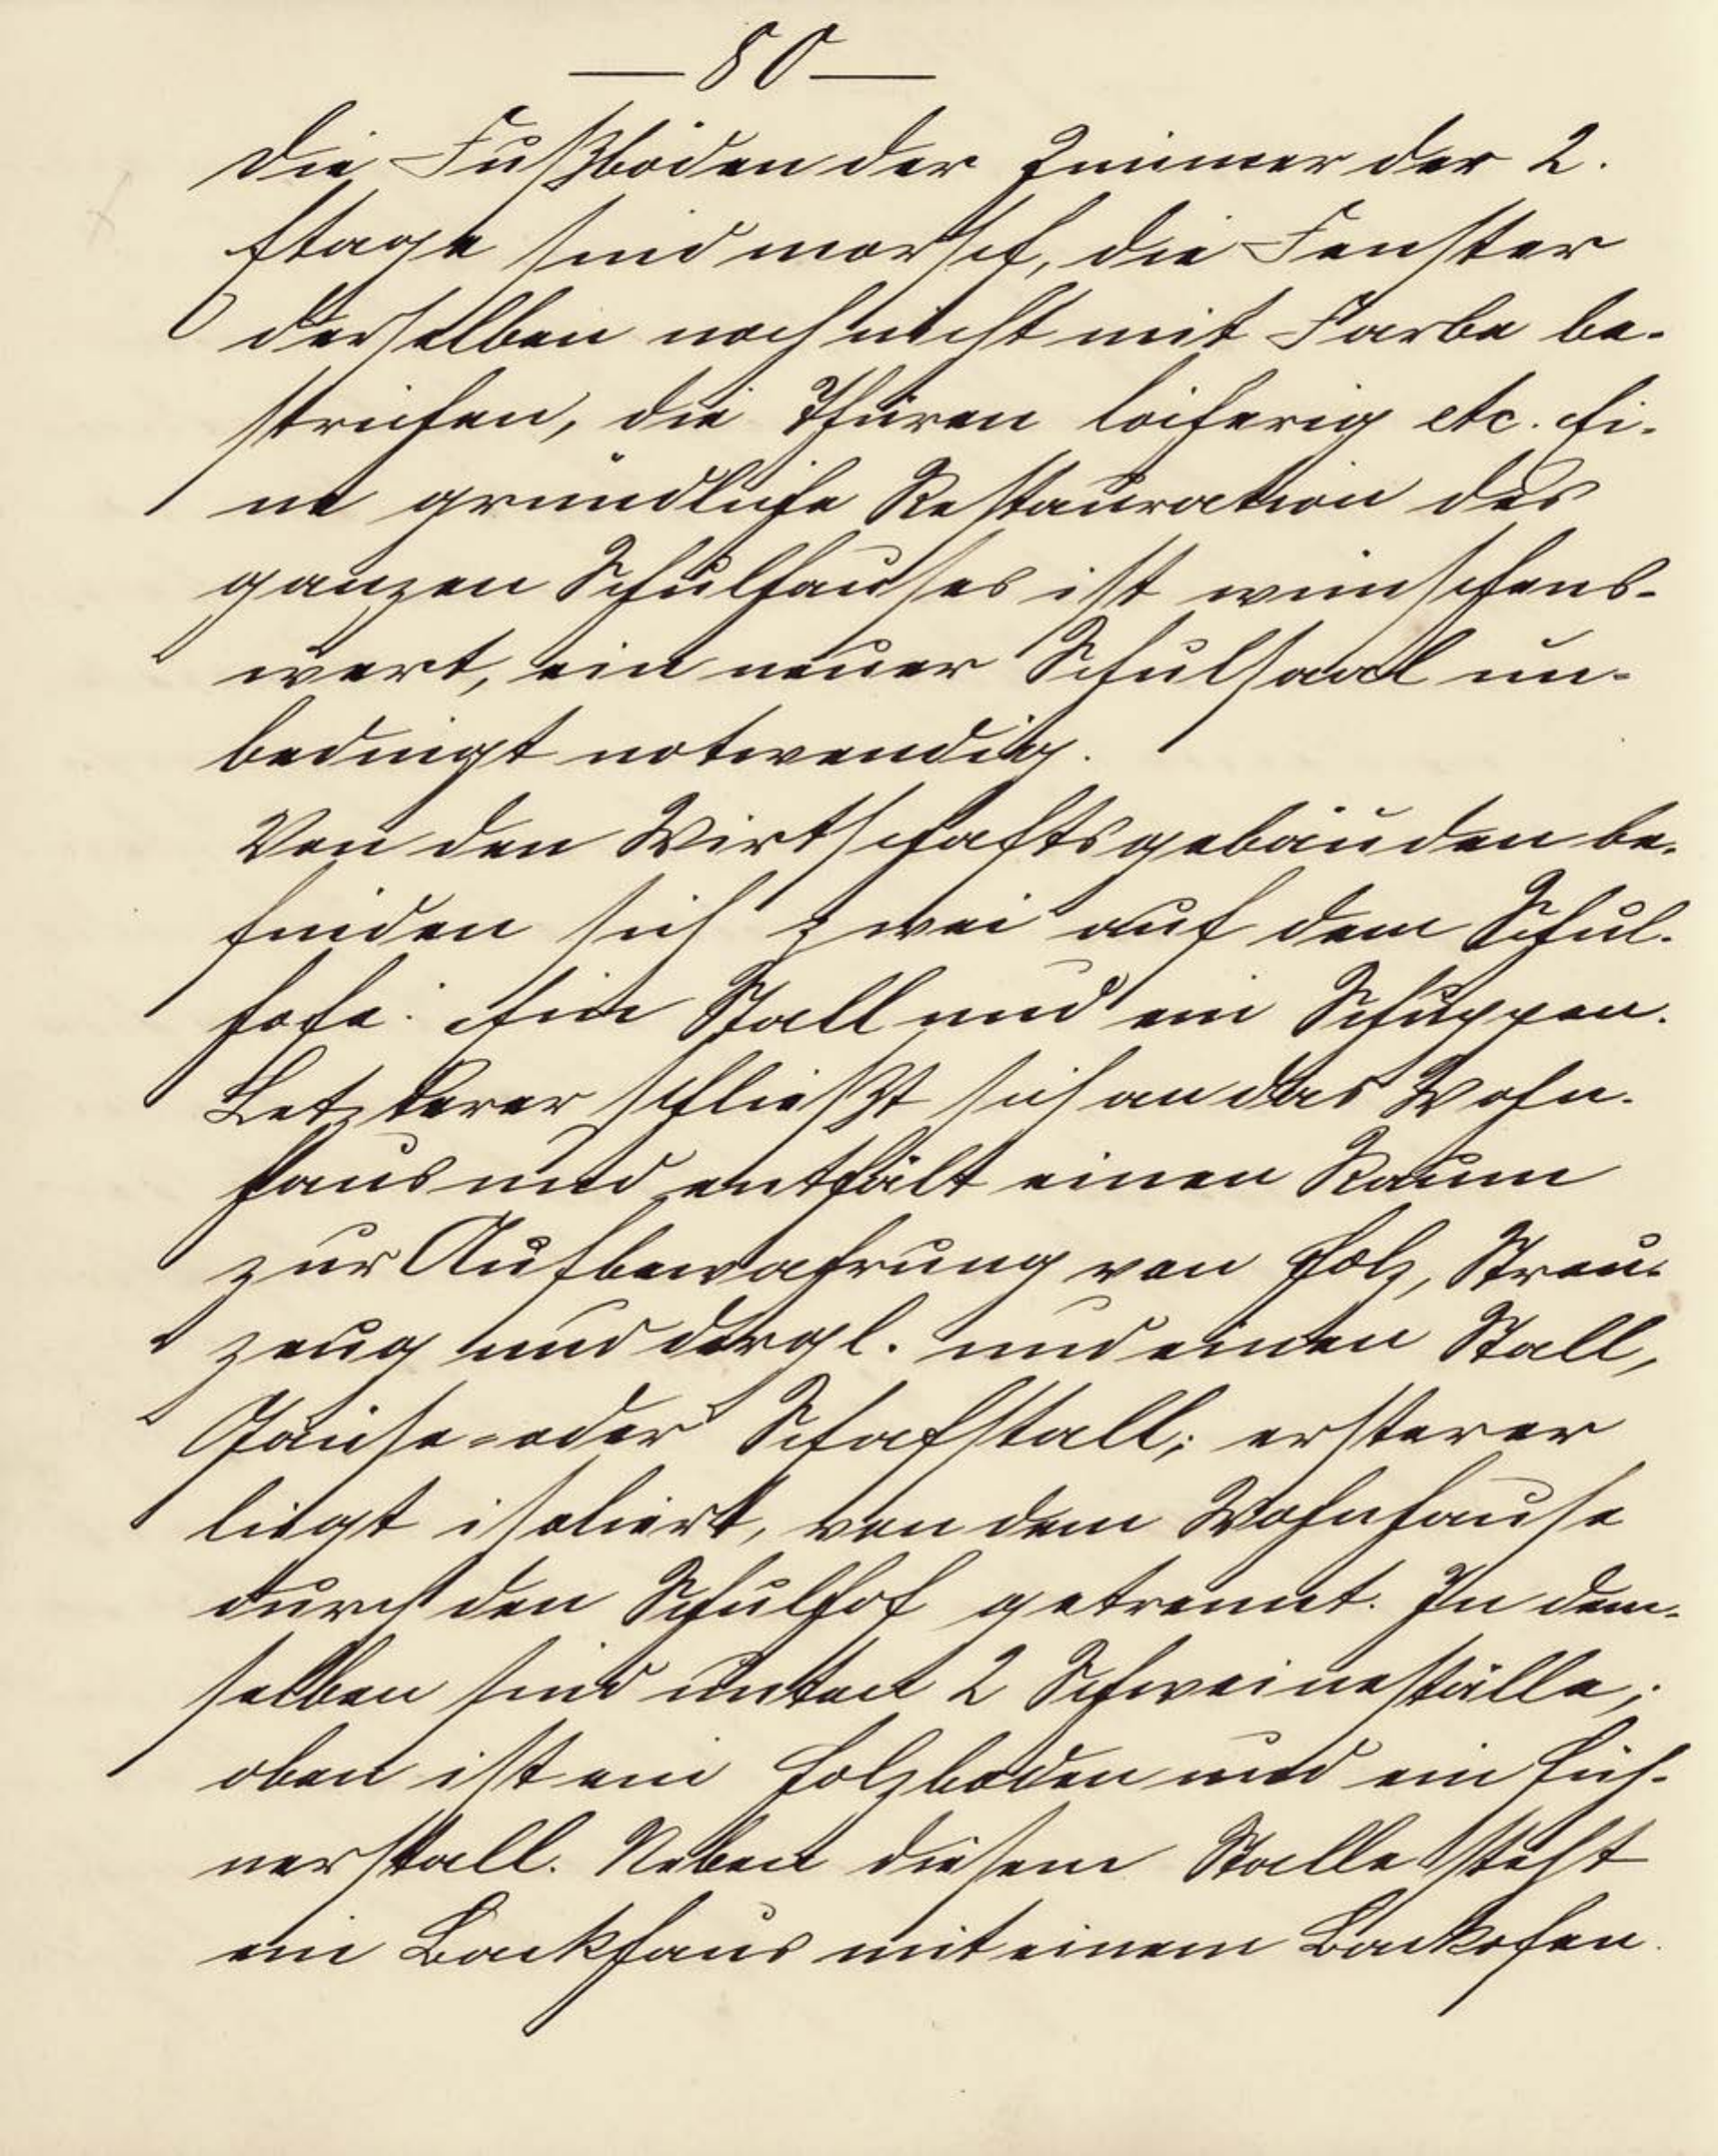 — 80 —
Die Fußböden der Zimmer der 2.
Etage sind morsch, die Fenster
derselben noch nicht mit Farbe be-
strichen, die Thüren löcherig etc. Ei-
ne gründliche Restauration des
ganzen Schulhauses ist wünschens-
wert, ein neuer Schulsaal un-
bedingt notwendig.
Von den Wirtschaftsgebäuden be-
finden sich zwei auf dem Schul-
hofe: Ein Stall und ein Schuppen.
Letzterer schließt sich an das Wohn-
haus und enthält einen Raum
zur Aufbewahrung von Holz, Streu-
zeug und dergl. und einen Stall,
Gänse- oder Schafstall; ersterer
liegt isoliert, von dem Wohnhause
durch den Schulhof getrennt. In dem-
selben sind unten 2 Schweineställe;
oben ist ein Holzboden und ein Hüh-
nerstall. Neben diesem Stalle steht
ein Backhaus mit einem Backofen.